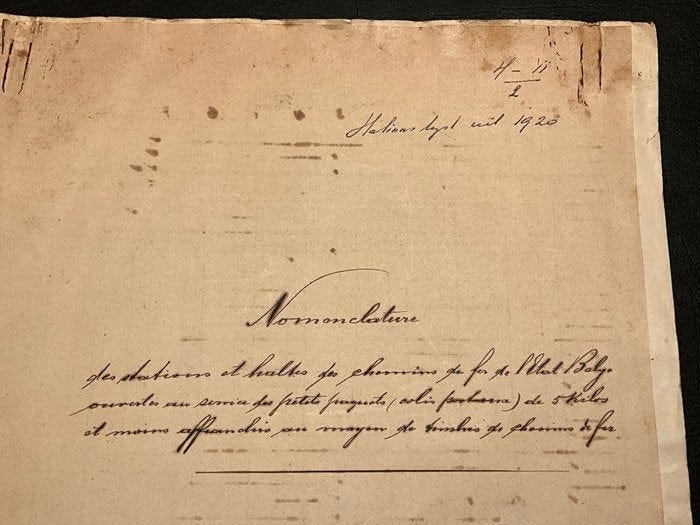 4 – 11
2
Stations lyst uit 1920
Nomenclature
des stations et haltes des chemins de fer de l'Etat Belge
ouvertes au service des petits paquets (colis postaux) de 5 Kilos
et moins affranchis au moyen de timbres de chemins de fer